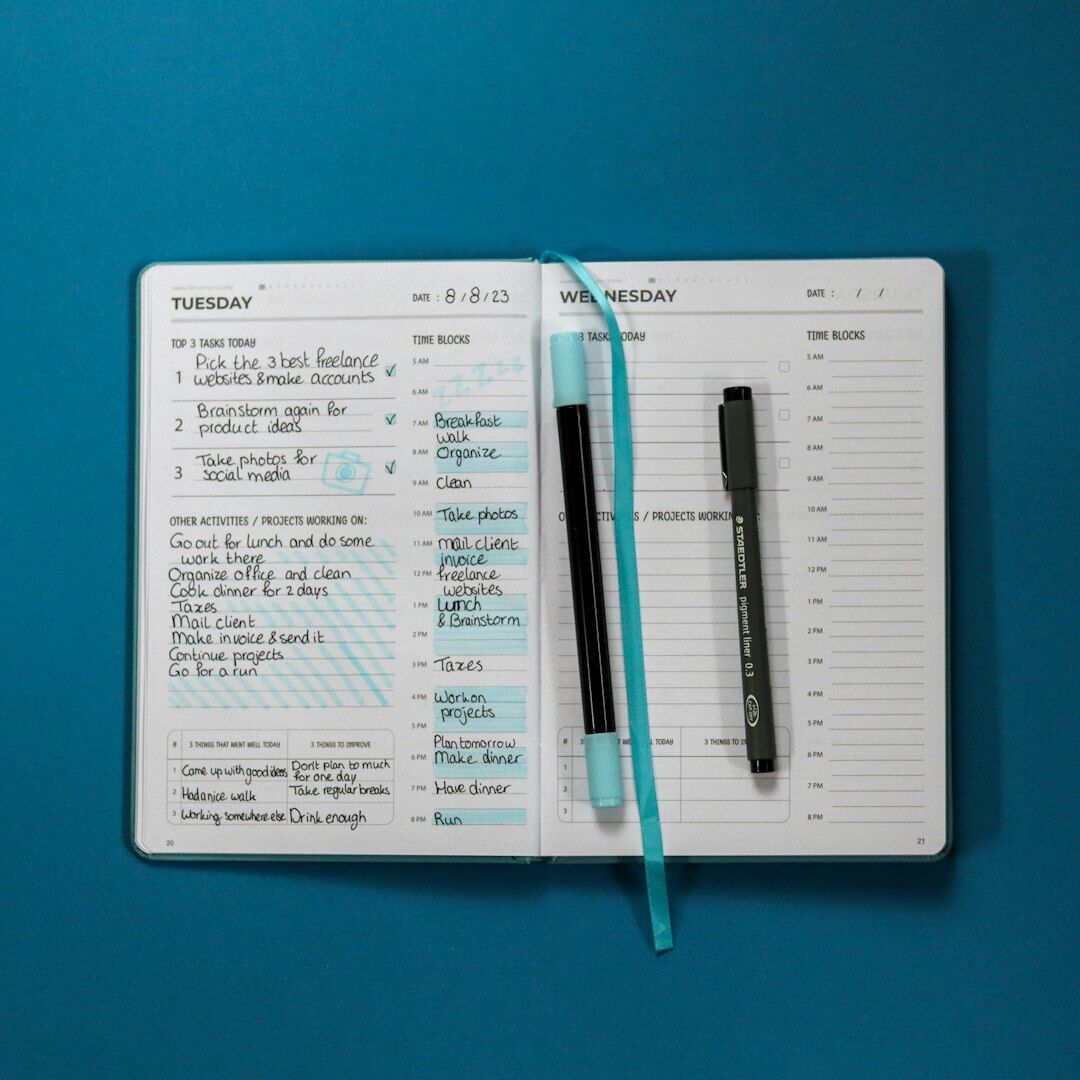 TUESDAY
DATE : 8/8/23
TOP 3 TASKS TODAY
1 Pick the 3 best freelance
websites & make accounts
2 Brainstorm again for
product ideas
3 Take photos for
social media
OTHER ACTIVITIES / PROJECTS WORKING ON:
Go out for lunch and do some
work there
Organize office and clean
Cook dinner for 2 days
Taxes
Mail client
Make invoice & send it
Continue projects
Go for a run
# 3 THINGS THAT WENT WELL TODAY 3 THINGS TO IMPROVE
1 Came up with good ideas Don't plan to much
for one day
2 Had a nice walk Take regular breaks
3 Working somewhere else Drink enough
20
TIME BLOCKS
5 AM
zzzzz
6 AM
7 AM Breakfast
walk
8 AM Organize
9 AM Clean
10 AM Take photos
11 AM mail client
invoice
12 PM freelance
websites
1 PM Lunch
& Brainstorm
2 PM
3 PM Taxes
4 PM Work on
projects
5 PM
Plan tomorrow
6 PM Make dinner
7 PM Have dinner
8 PM Run
WEDNESDAY
DATE : / /
3 TASKS TODAY
/ PROJECTS
# 3 THINGS
1
2
3
TIME BLOCKS
5 AM
6 AM
7 AM
8 AM
9 AM
10 AM
11 AM
12 PM
1 PM
2 PM
3 PM
4 PM
5 PM
6 PM
7 PM
8 PM
21
STAEDTLER
pigment liner 0.3